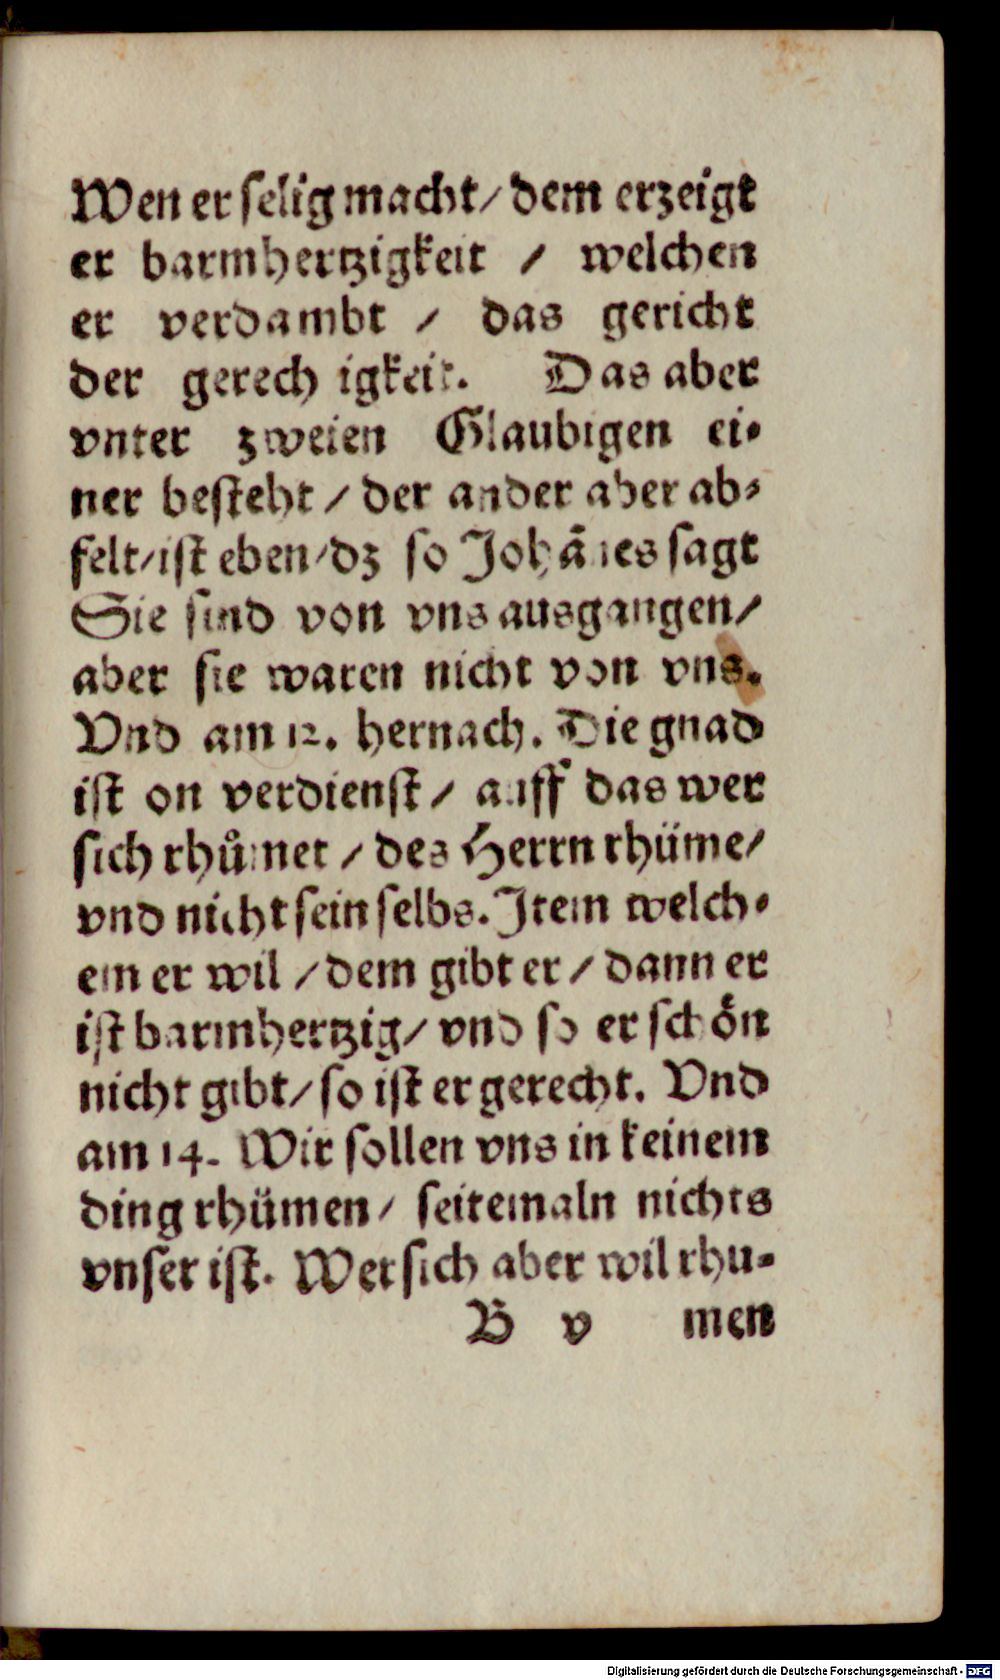 Wen er selig macht/ dem erzeigt
er barmhertzigkeit / welchen
er verdambt / das gericht
der gerechtigkeit. Das aber
vnter zweien Glaubigen ei-
ner besteht / der ander aber ab-
felt/ist eben/dz so Johānes sagt
Sie sind von vns ausgangen/
aber sie waren nicht von vns.
Vnd am 12. hernach. Die gnad
ist on verdienst / auff das wer
sich rhůmet / des Herrn rhüme/
vnd nicht sein selbs. Item welch-
em er wil / dem gibt er / dann er
ist barmhertzig/ vnd so er schön
nicht gibt/ so ist er gerecht. Vnd
am 14. Wir sollen vns in keinem
ding rhümen/ seitemaln nichts
vnser ist. Wer sich aber wil rhu-
B v men
Digitalisierung gefördert durch die Deutsche Forschungsgemeinschaft - DFG